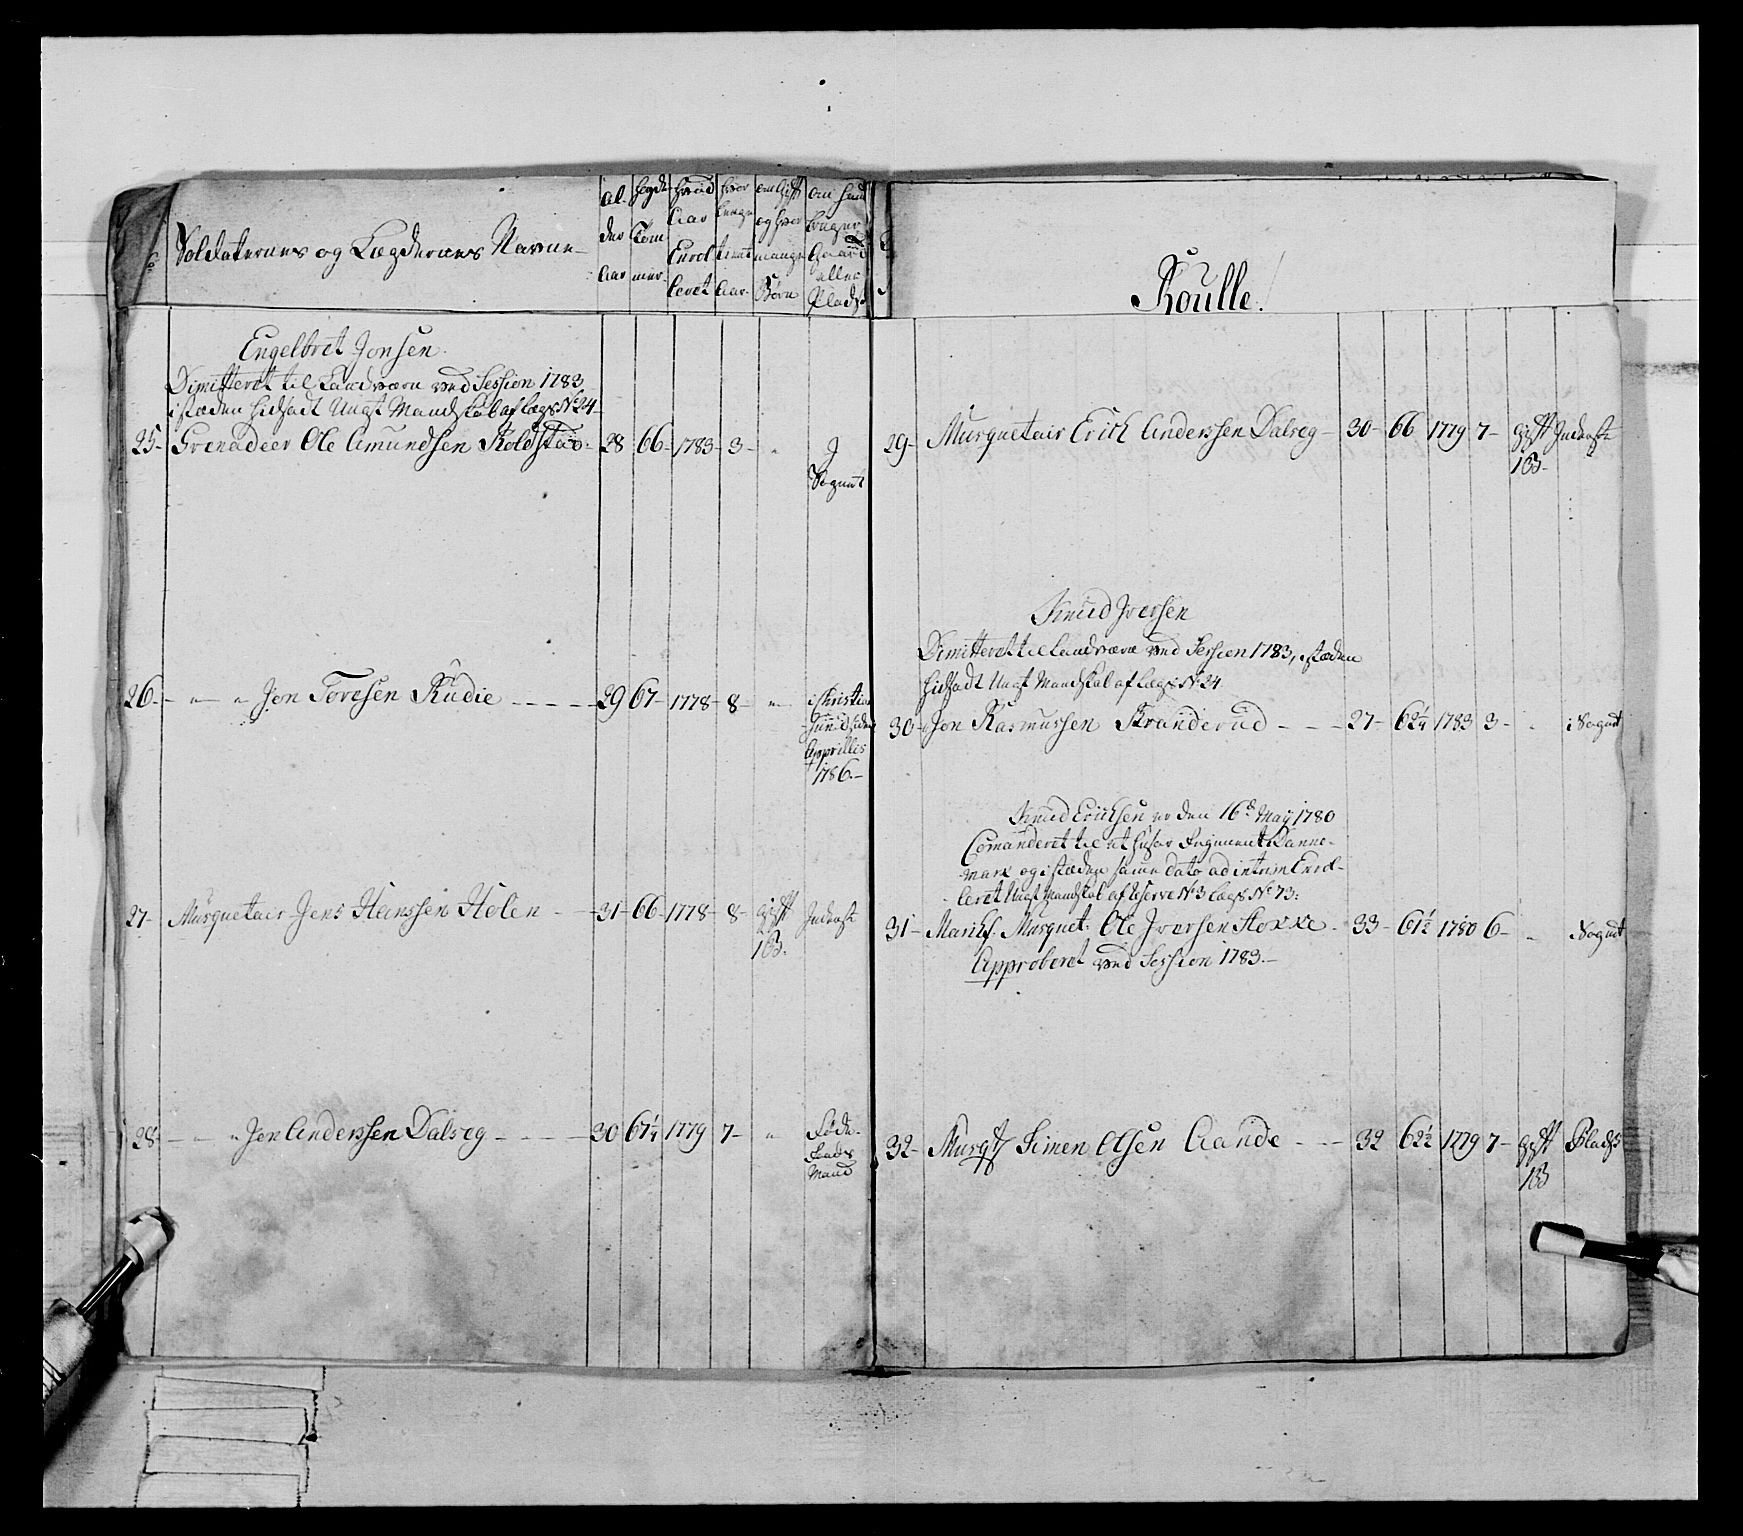 Soldaternes og Lægdernes Navne
Al-
der
Aar
Høyde
Tom-
mer
Hvad
Aar
Enrol-
leret
Hvor
længe
tient
Aar
om Gift
og hvor
mange
Børn
om hand
bruger
Gaard
eller
Plads
Engelbret Jonsen
Dimitteret til Landværn ved Session 1783
i stæden hidsadt Ungt Mandskab af Lægs No 24
25- Grenadeer Ole Amundsen Koldstad- 28 66- 1783- 3- " J
Sognet
26- - " - " Jon Toresen Rudie - - - - 29 67- 1778- 8- " - i Christia
siden
Apprillis
1786.-
27- Musquetair Jens Hanssen Holen - 31- 66- 1778- 8- gift
1 B.
Inderst
28- - " - " Jon Anderssen Dalseg - - - - 30 67¼ 1779 7- "
Føde-
Mand
Roulle.
29- Musquetair Erich Anderssen Dalseg- 30- 66 1779 7- gift Inderste
1 B-
Knud Iversen
Dimitteret til Landværn ved Session 1783, i stæden
hidsadt Ungt Mandskab af Lægs No 24
30- Jon Rasmussen Stranderud - - - 27- 62¼ 1783 3- " i Sognet
Knud Erichsen er den 16d May 1780
Comanderet til et Husar Regiment i Danne-
mark og i stæden samme dato ad intrim Enrol-
leret Ungt Mandskab af Reserve No 3 Lægs No 73:
31- Musquet: Ole Iversen Stokke- 33- 61½ 1780 6- " Sognet
Approberet ved Session 1783.-
32- Musqt Simen Olsen Aande - - - 32 62½ 1779 7- gift Plads
1 B